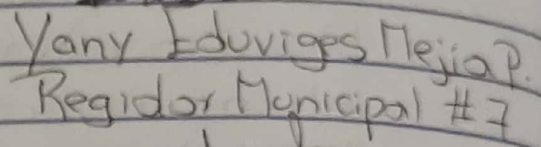 Yany Eduviges Mejia P.
Regidor Municipal #7